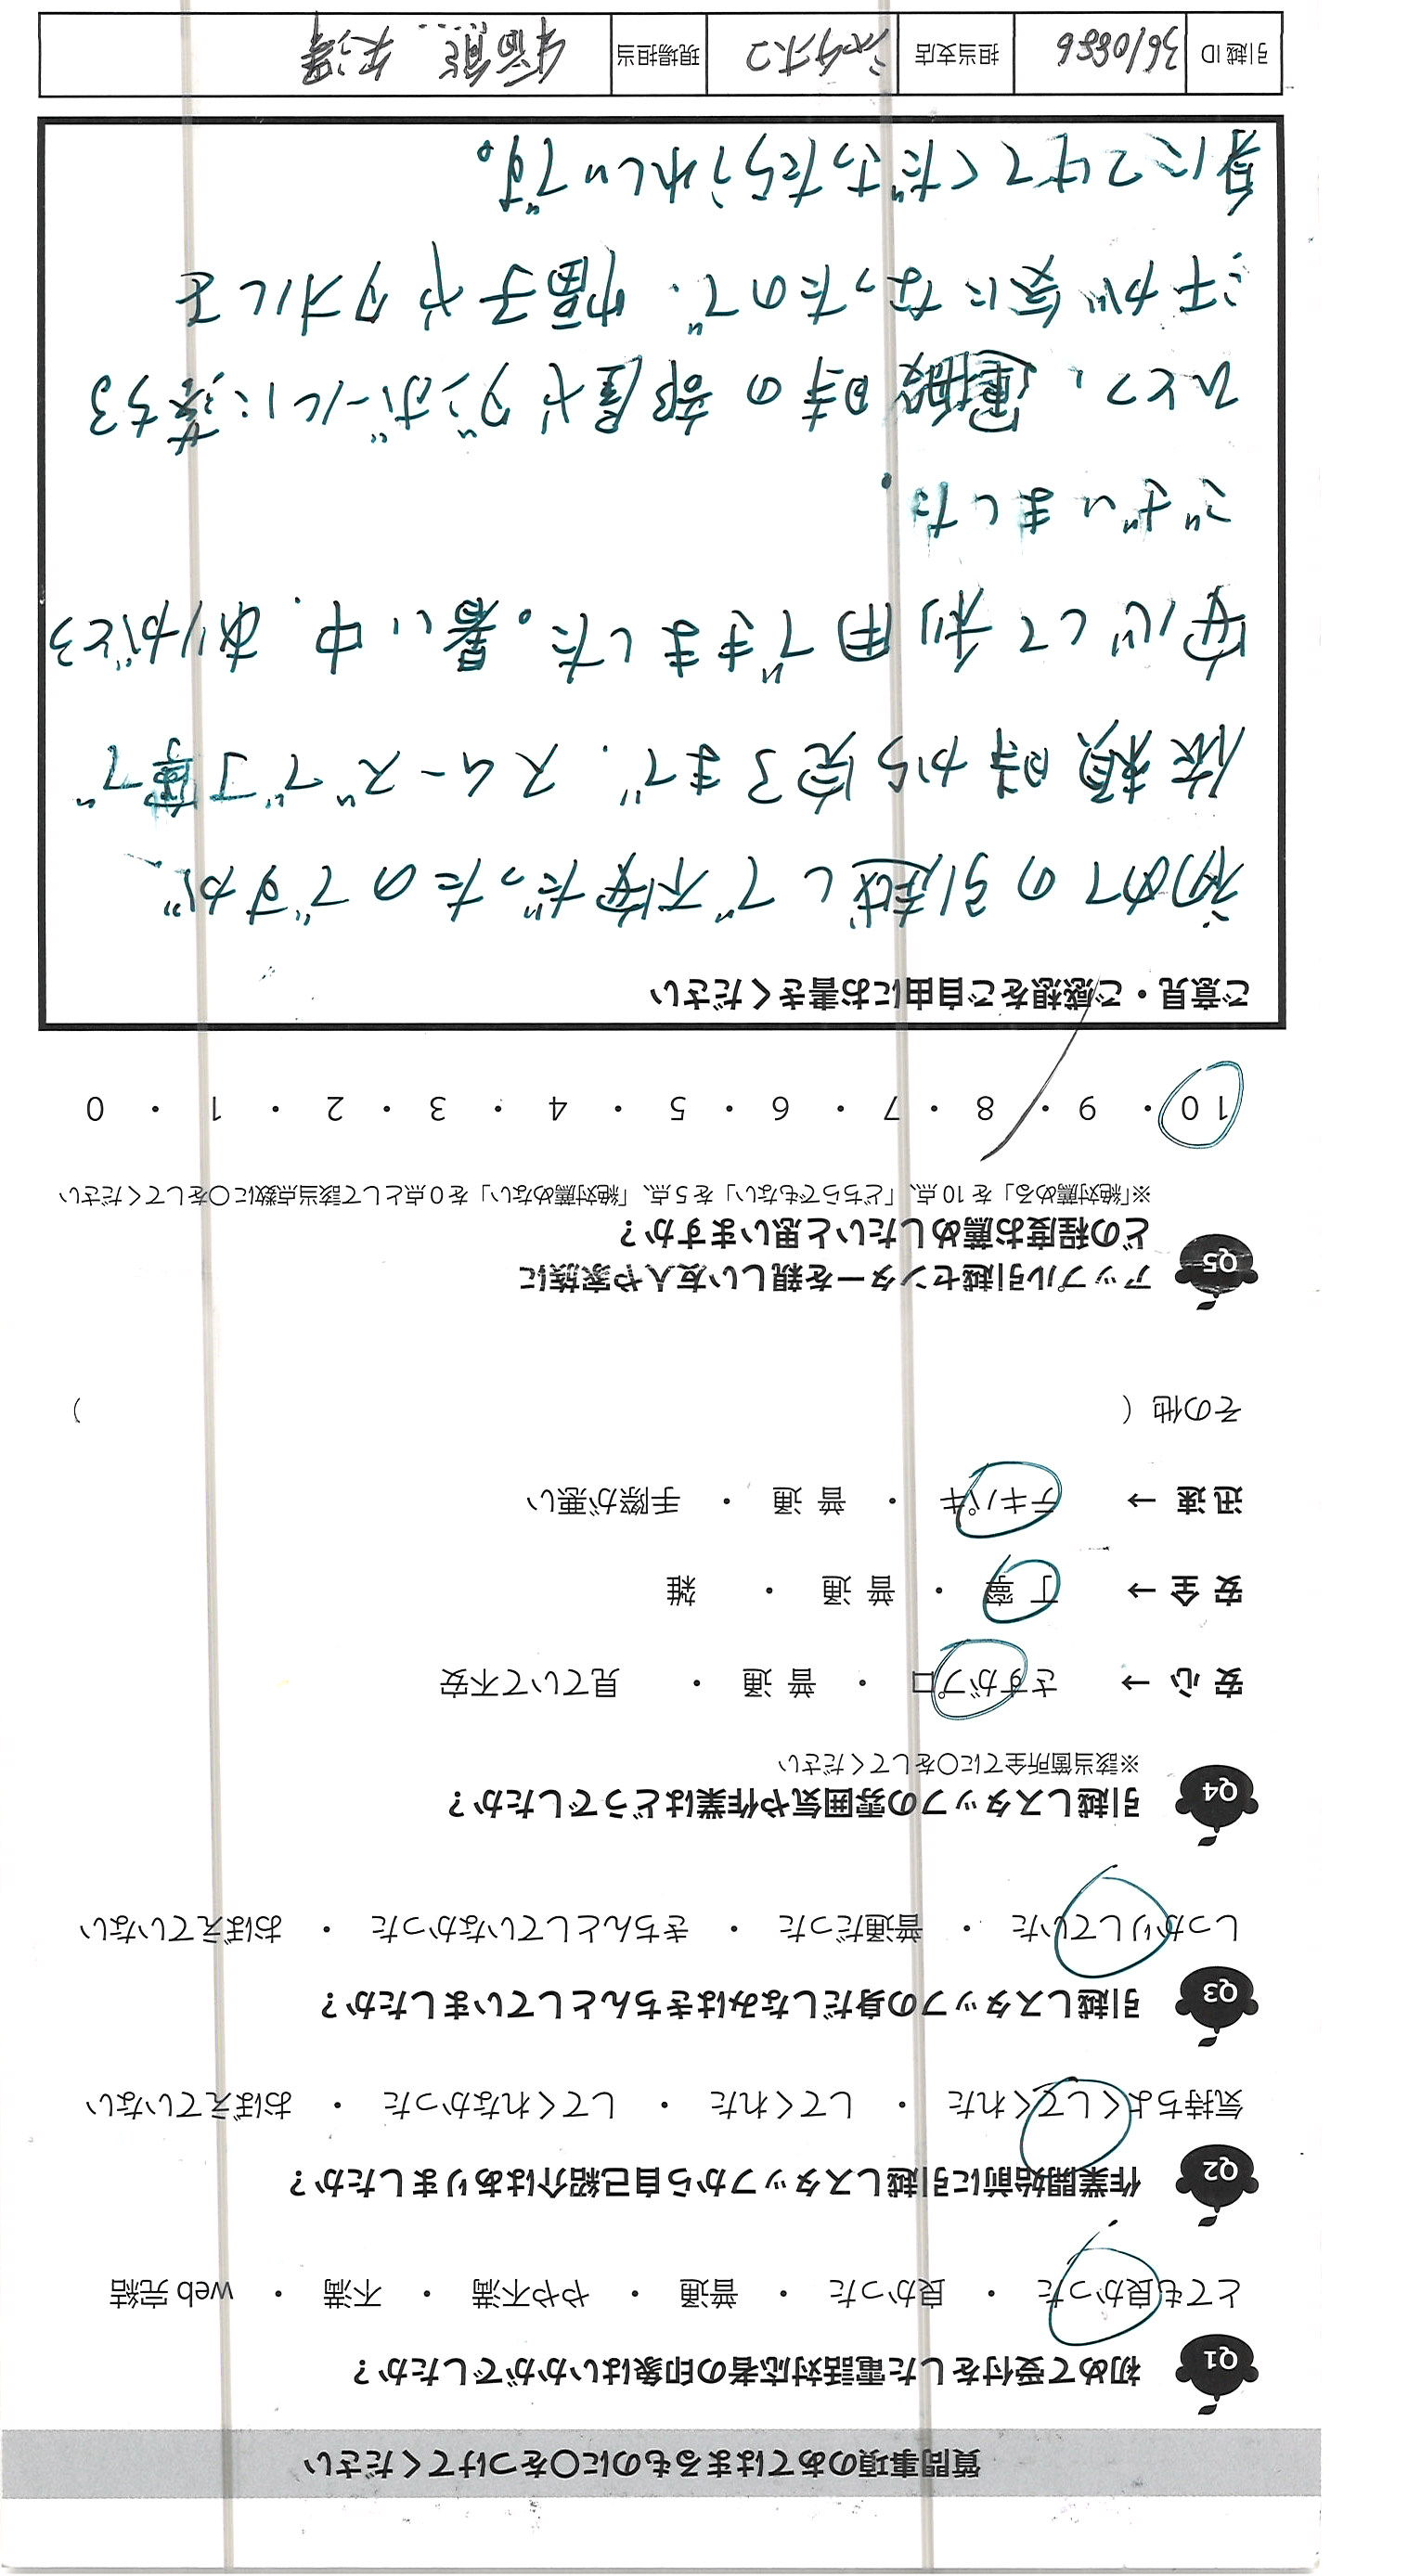 質問事項のあてはまるものに〇をつけてください
Q1 初めて受付をした電話対応者の印象はいかがでしたか？
とても良かった ・ 良かった ・ 普通 ・ やや不満 ・ 不満 ・ web 完結
Q2 作業開始前に引越しスタッフから自己紹介はありましたか？
気持ちよくしてくれた ・ してくれた ・ してくれなかった ・ おぼえていない
Q3 引越しスタッフの身だしなみはきちんとしていましたか？
しっかりしていた ・ 普通だった ・ きちんとしていなかった ・ おぼえていない
Q4 引越しスタッフの雰囲気や作業はどうでしたか？
※該当箇所全てに〇をしてください
安 心 → さすがプロ ・ 普 通 ・ 見ていて不安
安 全 → 丁 寧 ・ 普 通 ・ 雑
迅 速 → テキパキ ・ 普 通 ・ 手際が悪い
その他（ ）
Q5 アップル引越センターを親しい友人や家族に
どの程度お薦めしたいと思いますか？
※「絶対薦める」を 10 点、「どちらでもない」を 5 点、「絶対薦めない」を 0 点として該当点数に〇をしてください
10 ・ 9 ・ 8 ・ 7 ・ 6 ・ 5 ・ 4 ・ 3 ・ 2 ・ 1 ・ 0
ご意見・ご感想をご自由にお書きください
初めての引越しで不安だったのですが、
依頼時から完了まで、スムーズで丁寧で
安心して利用できました。暑い中、ありがとう
ございました。
ひとつ、運搬時の部屋やダンボールに落ちる
汗が気になったので、帽子やタオルを
身につけてくださったらうれしいです。
引越 ID 3610886 担当支店 現場担当 稲熊、矢澤